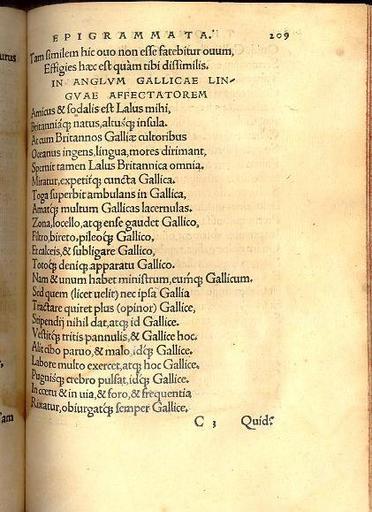 EPIGRAMMATA. 209
Tam similem hic ouo non esse fatebitur ouum,
Effigies hæc est quàm tibi dissimilis.
IN ANGLVM GALLICAE LIN-
GVAE AFFECTATOREM
Amicus & sodalis est Lalus mihi,
Britanniáq; natus, altusq; insula.
At cum Britannos Galliæ cultoribus
Oceanus ingens, lingua, mores dirimant,
Spernit tamen Lalus Britannica omnia.
Miratur, expetitq; cuncta Gallica.
Toga superbit ambulans in Gallica,
Amatq; multum Gallicas lacernulas.
Zona, locello, atq; ense gaudet Gallico,
Filtro, bireto, pileoq; Gallico,
Et calceis, & subligare Gallico,
Totoq; deniq; apparatu Gallico.
Nam & unum habet ministrum, eumq; Gallicum.
Sed quem (licet uelit) nec ipsa Gallia
Tractare quiret plus (opinor) Gallice,
Stipendij nihil dat, atq; id Gallice.
Vestitq; tritis pannulis, & Gallice hoc.
Alit cibo paruo, & malo, idq; Gallice.
Labore multo exercet, atq; hoc Gallice.
Pugnisq; crebro pulsat, idq; Gallice.
In cœtu & in uia, & foro, & frequentia
Rixatur, obiurgatq; semper Gallice.
C 3 Quid?